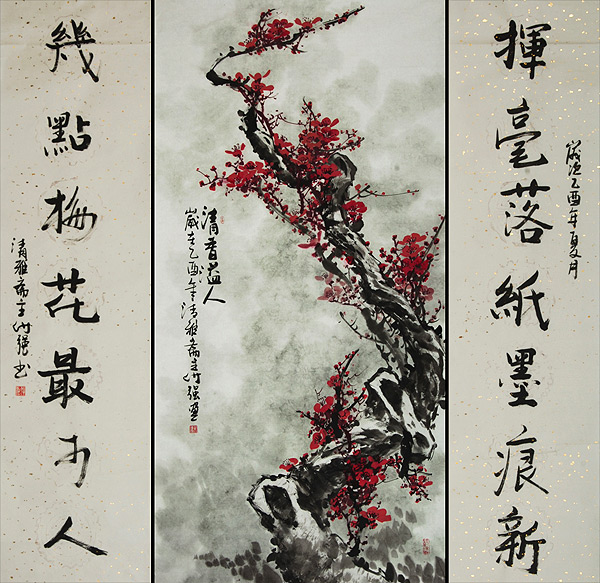 歲次乙酉年夏月
揮毫落紙墨痕新
清香益人
歲在乙酉年清雅齋主竹强畫
幾點梅花最可人
清雅齋主竹强书